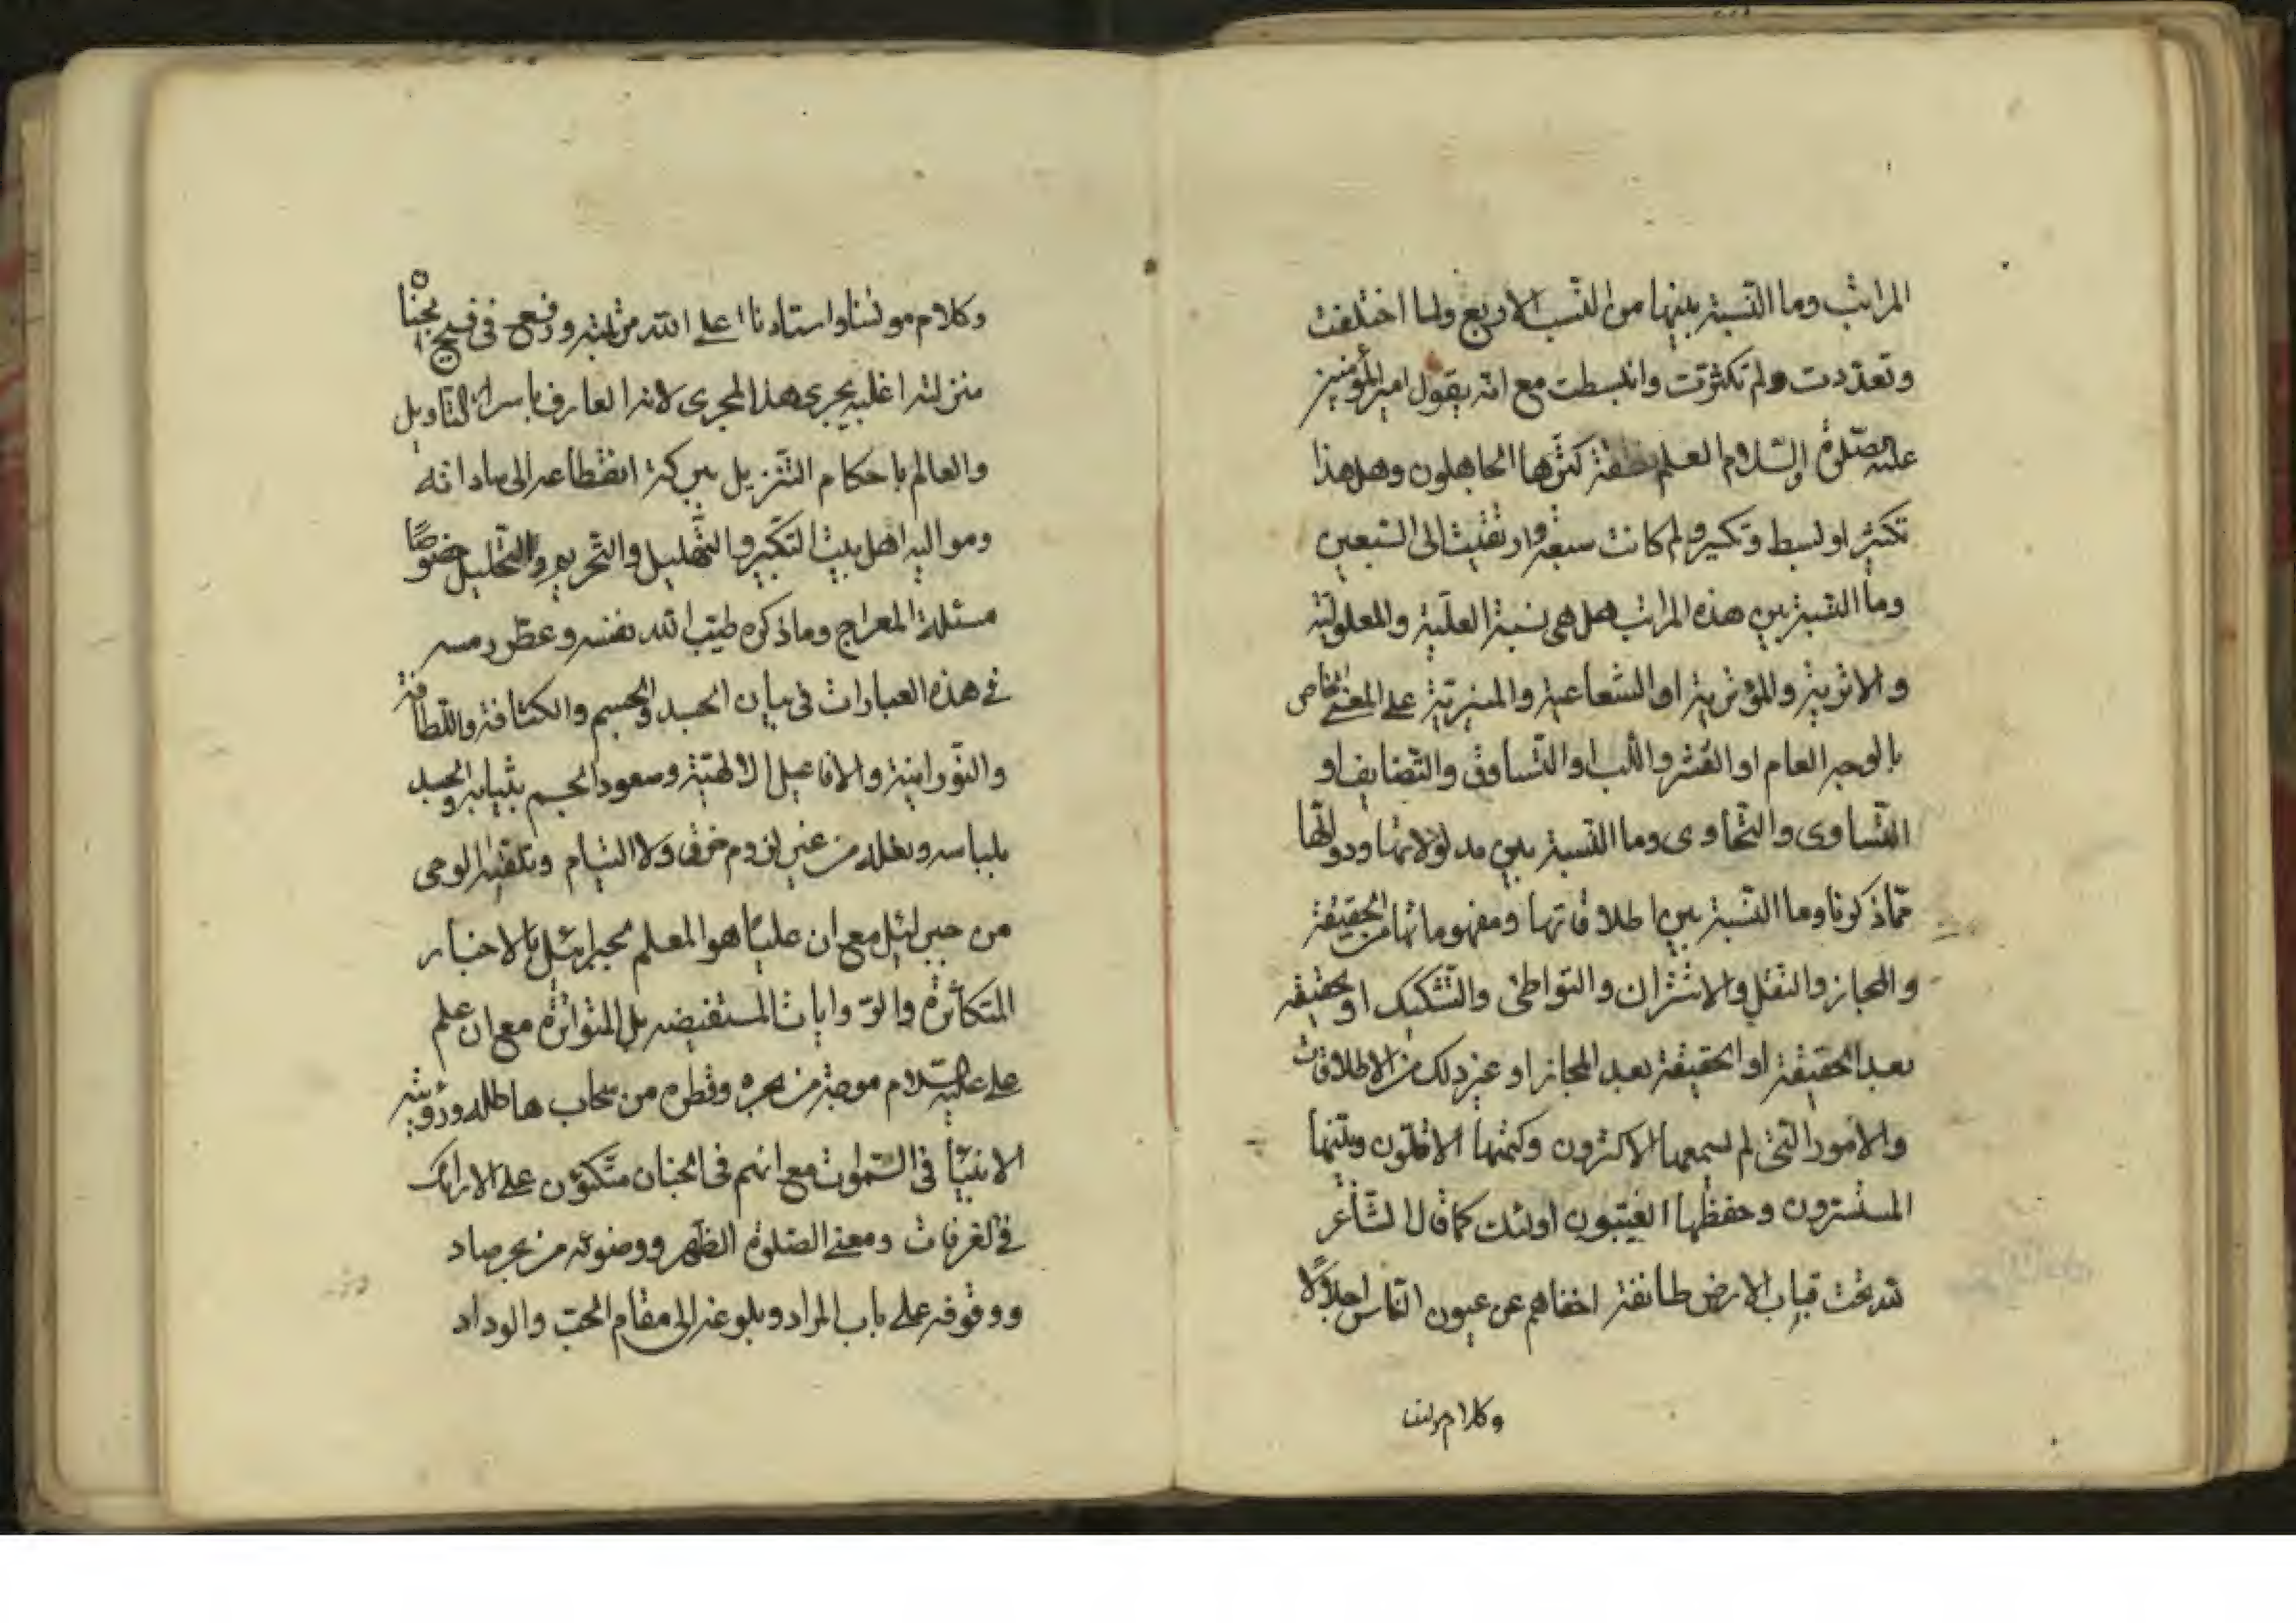 المراتب وما النسبة بينها من النسب الاربع ولما اختلفت
وتعددت ولم تكثرت وانبسطت مع انه يقول امير المؤمنين
عليه الصلوة والسلام العلم نقطة كثرها الجاهلون وهل هذا
تكثير او بسط وتكسير ولم كانت سبعة وارتقيت الى السبعين
وما النسبة بين هذه المراتب هل هى نسبة العلية والمعلولية
والاثرية والمؤثرية او الشعاعية والمنيرية على المعنى الخاص
بالوجه العام او القشر واللب او التساوق والتضايف او
التساوى والتحاوى وما النسبة بين مدلولاتها ودوالها
مما ذكرنا وما النسبة بين اطلاقاتها ومفهوماتها من الحقيقة
والمجاز والنقل والاشتراك والتواطئ والتشكيك او حقيقة
بعد الحقيقة او الحقيقة بعد المجاز او غير ذلك من الاطلاقات
والامور التى لم يسمعها الاكثرون وكتمها الاقلون وبينها
المستسرون وحفظها الغيبيون اولئك كما قال الشاعر
لله تحت قباب الارض طائفة اخفاهم عن عيون الناس اجلالا
وكلام مولينا
وكلام مولينا واستادنا اعلى الله مرتبته ورفع فى فسيح الجنان
منزلته اغلبه يجرى هذا المجرى لانه العارف باسرار التاويل
والعالم باحكام التنزيل ببركة انقطاعه الى ساداته
ومواليه اهل بيت التكبير والتهليل والتحريم والتحليل خصوصًا
مسئلة المعراج وما ذكره طيب الله نفسه وعطر رمسه
فى هذه العبارات فى بيان الجسد والجسم والكثافة واللطافة
والنورانية والافاعيل الالهية وصعود الجسم بثيابه والجسد
بلباسه ونعله من غير لزوم خرق ولا التيام وتلقيه الوحى
من جبرائيل مع ان عليًا هو المعلم لجبرائيل بالاخبار
المتكاثرة والروايات المستفيضه بل المتواترة مع ان علم
على عليه السلام موجة من بحره وقطرة من سحاب هاطله ورؤيته
الانبيآ فى السموات مع انهم فى الجنان متكئون على الارائك
فى الغرفات ومعنى الصلوة الظهر ووضوئه من بحر صاد
ووقوفه على باب المراد وبلوغه الى مقام الحب والوداد